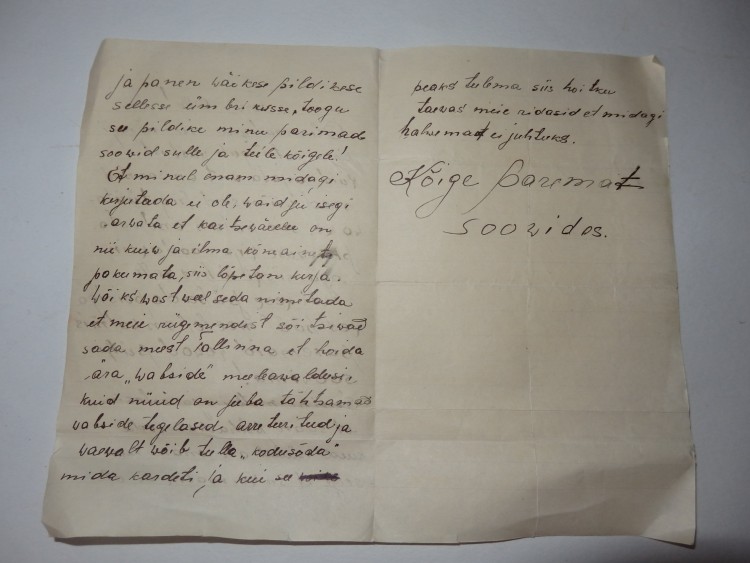 ja panen wäikese pildikese
sellesse ümbrikusse, toogu
see pildike minu parimad
soowid sulle ja teile kõigele!
Et minul enam midagi
kirjutada ei ole, waid ju isegi
arwata et kaitsewäeelu on
nii kuiw ja ilma kõneainet
pakumata, siis lõpetan kirja.
Wõiks wast weel seda nimetada
et meie rügemendist sõitsiwad
sada meest Tallinna et hoida
ära „wabside" meeleawaldusi,
kuid nüüd on juba tähtsamad
wabside tegelased arreteeritud ja
waewalt wõib tulla „kodusõda"
mida kardeti, ja kui see
peaks tulema siis hoitku
taewas meie ridasid et midagi
halwemat ei juhtuks.
Kõige paremat
soowides.